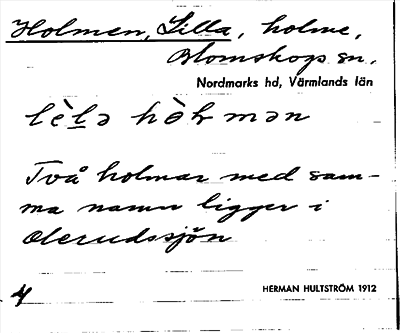 Holmen, Lilla, holme,
Blomskogs sn.
Nordmarks hd, Värmlands län
Två holmar med sam-
ma namn ligger i
HERMAN HULTSTRÖM 1912